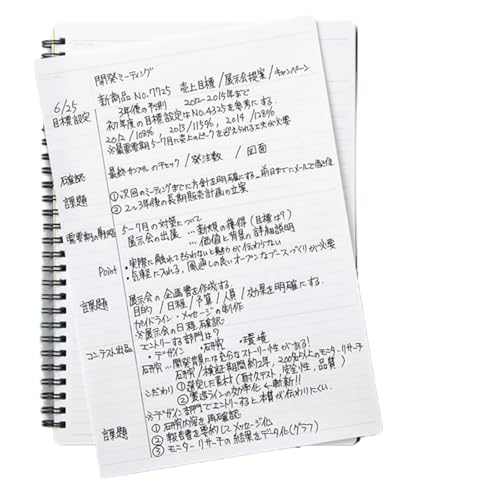 開発ミーティング
6/25 新商品 No.7725 売上目標/展示会提案/キャンペーン
目標設定 3年後の予測 2012–2015年まで
初年度の目標設定はNo.4325を参考にする。
2012/108%, 2013/115%, 2014/128%
※最重要期5-7月に売上のピークを迎えられる工夫が必要
確認 最終サンプルのチェック/発注数 /図面
課題 ①次回のミーティングまでに方針を明確にする。前日までにメールで
②2〜3年後の長期販売計画の立案
重要期の戦略 5–7月の対策について
展示会の出展 …新規の獲得(目標は?)
…価値と背景の詳細説明
Point ・実際に触れてもらわないと魅力が伝わらない
・気軽に入れる、風通しの良いオープンなブースづくりが必要
課題 展示会の企画書を作成する。
目的/日程/予算/人員/効果を明確にする。
ガイドライン・メッセージの制作
※展示会の日程確認
コンテスト出品 エントリーする部門は?
・デザイン ・研究 ・環境
研究…開発背景には充分なストーリー性がある!
研究/検証期間約2年, 200名以上のモニターリサーチ
こだわり ①選定した素材(耐久テスト, 安全性, 品質)
②製造ラインの効率化 ←斬新!!
※デザイン部門でエントリーすると本質が伝わりにくい。
課題 ①研究内容を再確認
②報告書を要約してメッセージ化
③モニターリサーチの結果をデータ化(グラフ)